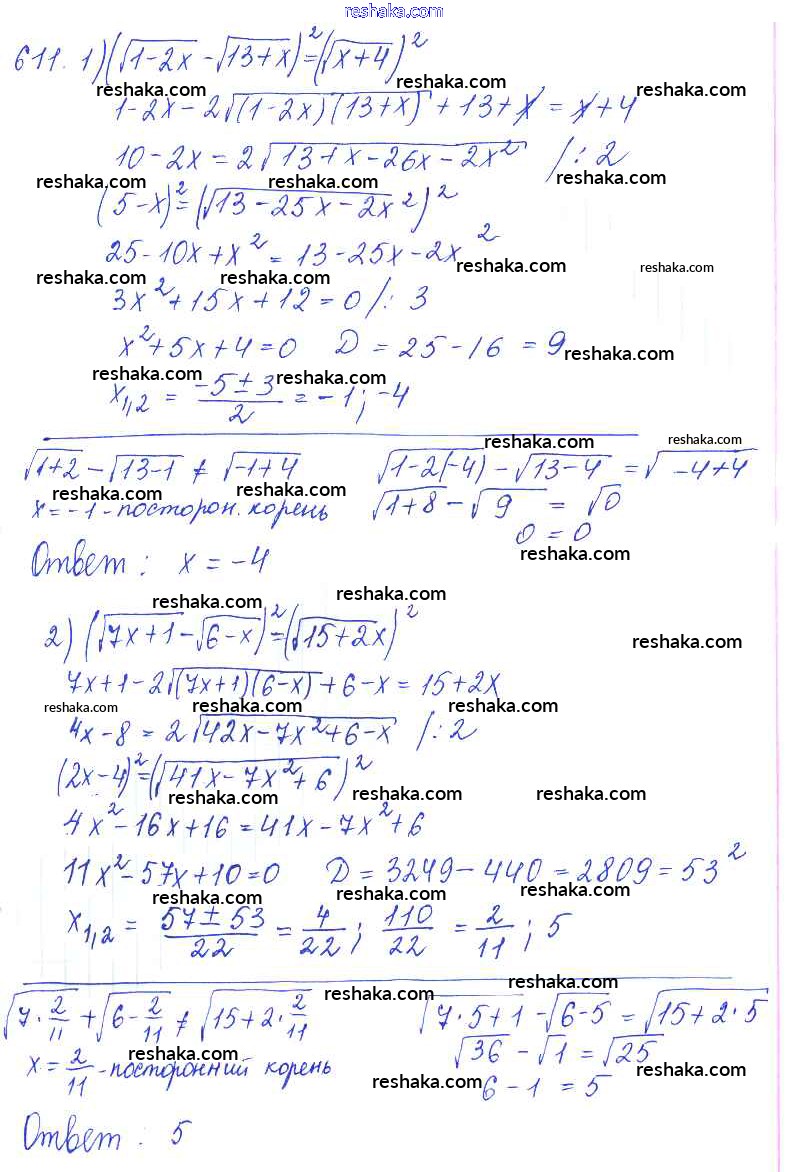 reshaka.com
611. 1) (√(1-2x) - √(13+x))² = (√(x+4))²
reshaka.com reshaka.com reshaka.com
1-2x-2√((1-2x)(13+x)) + 13+x = x+4
10-2x = 2√(13+x-26x-2x²) /: 2
reshaka.com reshaka.com reshaka.com
(5-x)² = (√(13-25x-2x²))²
25-10x+x² = 13-25x-2x²
reshaka.com reshaka.com reshaka.com reshaka.com
3x²+15x+12=0 /: 3
x²+5x+4=0 D = 25-16 = 9
reshaka.com
reshaka.com reshaka.com
x1,2 = (-5±3)/2 = -1; -4
reshaka.com reshaka.com
√(1+2) - √(13-1) ≠ √(-1+4) √(1-2(-4)) - √(13-4) = √(-4+4)
reshaka.com reshaka.com reshaka.com
x=-1 - посторон. корень √(1+8) - √9 = √0
0 = 0
reshaka.com
Ответ: x = -4
reshaka.com reshaka.com
2) (√(7x+1) - √(6-x))² = (√(15+2x))²
reshaka.com reshaka.com reshaka.com
7x+1-2√((7x+1)(6-x)) + 6-x = 15+2x
reshaka.com reshaka.com reshaka.com
4x-8 = 2√(42x-7x²+6-x) /: 2
(2x-4)² = (√(41x-7x²+6))²
reshaka.com reshaka.com reshaka.com
4x²-16x+16 = 41x-7x²+6
11x²-57x+10=0 D = 3249-440 = 2809 = 53²
reshaka.com reshaka.com reshaka.com
x1,2 = (57±53)/22 = 4/22; 110/22 = 2/11; 5
reshaka.com reshaka.com reshaka.com
√(7·2/11) + √(6-2/11) ≠ √(15+2·2/11) √(7·5+1) - √(6-5) = √(15+2·5)
√36 - √1 = √25
reshaka.com reshaka.com reshaka.com
x = 2/11 - посторонний корень 6-1 = 5
Ответ: 5